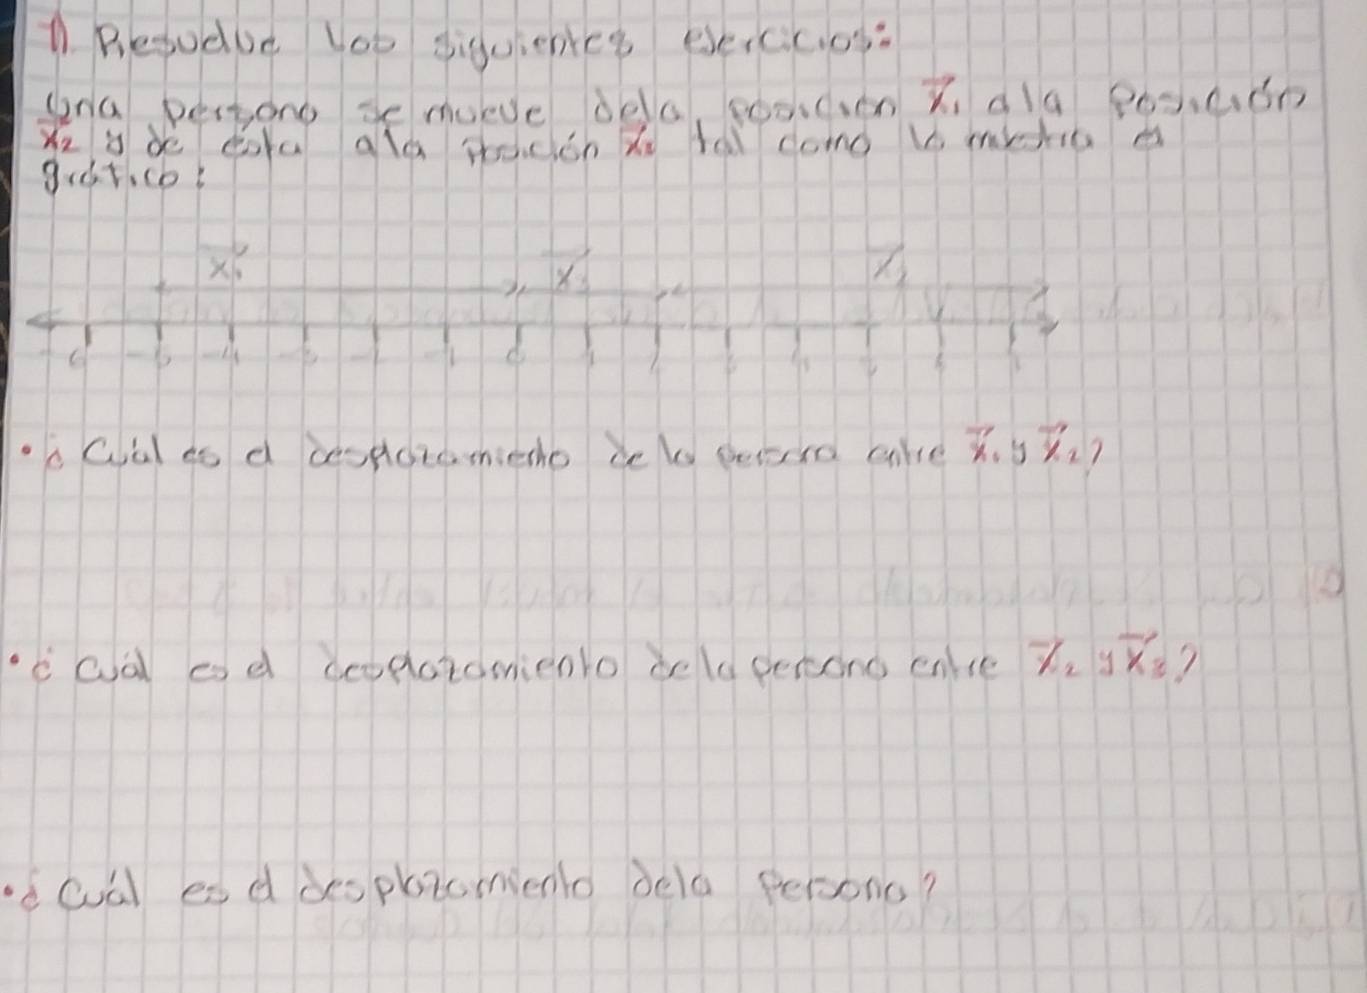 1) Resuelve los siguientes ejercicios:
Una persona se mueve dela posición x₁ ala Posición
x₂ y de esta ala posición x₃ tal como lo muestra el
gráfico:
x₁ x₃ x₂
• ¿ Cuál es el desplazamiento de la persona entre x₁ y x₂?
• ¿ Cuál es el desplazamiento dela persona entre x₂ y x₃?
• ¿ Cuál es el desplazamiento dela Persona?